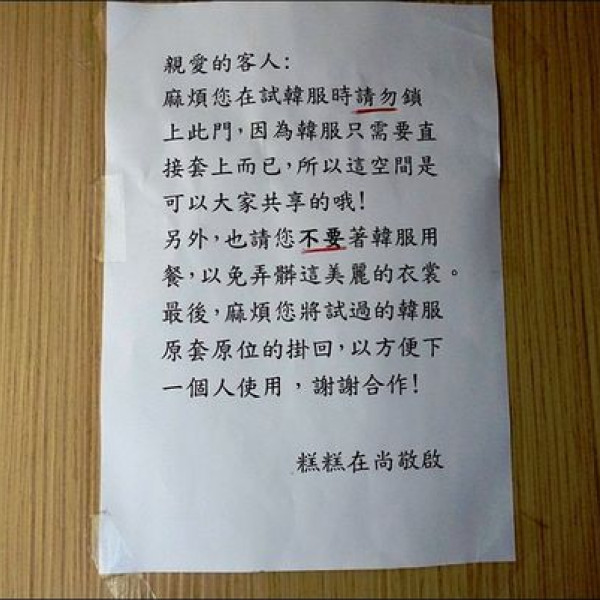 親愛的客人:
麻煩您在試韓服時請勿鎖
上此門,因為韓服只需要直
接套上而已,所以這空間是
可以大家共享的哦!
另外,也請您不要著韓服用
餐,以免弄髒這美麗的衣裳。
最後,麻煩您將試過的韓服
原套原位的掛回,以方便下
一個人使用,謝謝合作!
糕糕在尚敬啟